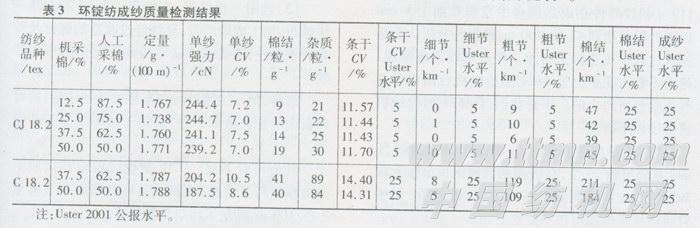 表 3 环锭纺成纱质量检测结果
纺纱品种/tex 机采棉/% 人工采棉/% 定量/g·(100 m)⁻¹ 单纱强力/cN 单纱CV/% 棉结/粒·g⁻¹ 杂质/粒·g⁻¹ 条干CV/% 条干CV Uster水平/% 细节/个·km⁻¹ 细节Uster水平/% 粗节/个·km⁻¹ 粗节Uster水平/% 棉结/个·km⁻¹ 棉结Uster水平/% 成纱Uster水平/%
12.5 87.5 1.767 244.4 7.2 9 21 11.57 5 0 5 9 5 47 25 25
CJ 18.2 25.0 75.0 1.738 244.7 7.0 13 22 11.44 5 1 5 10 5 42 25 25
37.5 62.5 1.760 241.1 7.5 14 25 11.43 5 0 5 6 5 39 25 25
50.0 50.0 1.771 239.2 7.0 19 30 11.70 5 5 11 5 45 25 25
C 18.2 37.5 62.5 1.787 204.2 10.5 41 89 14.40 25 8 25 119 25 211 25 25
50.0 50.0 1.788 187.5 8.6 40 84 14.31 25 5 25 109 25 184 25 25
注:Uster 2001 公报水平。
www.ttmn.com
中国纺机网